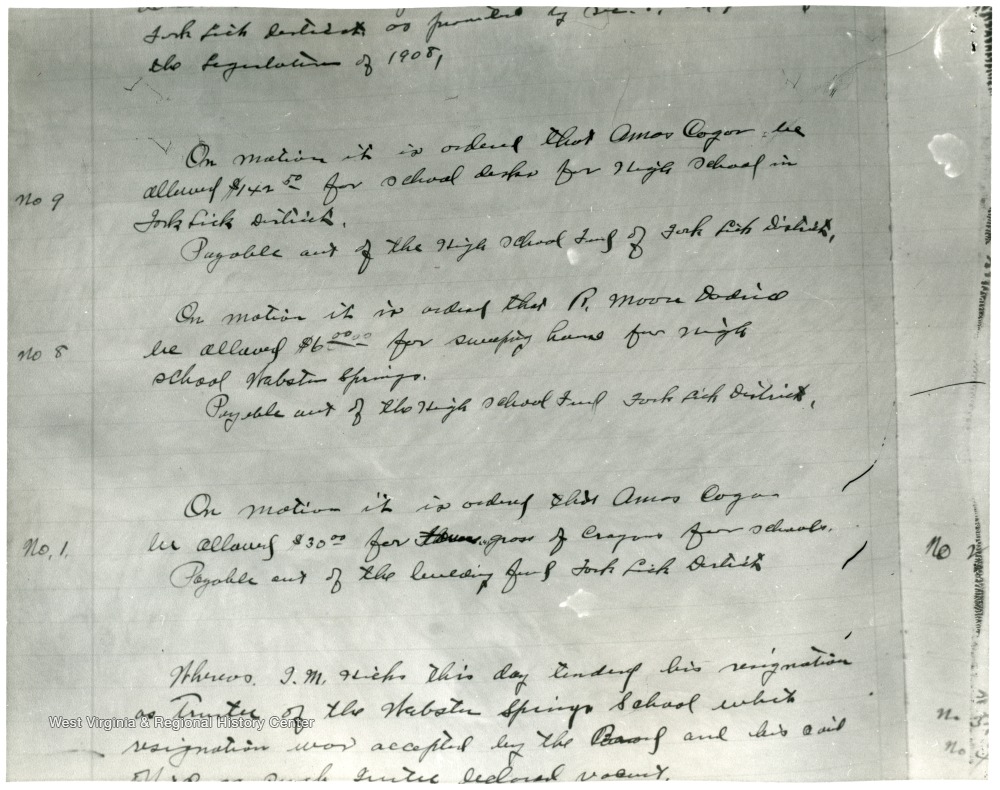 Fork Lick District as provided by
the Legislature of 1908,
On motion it is ordered that Amos Cogar be
No 9 allowed $142 50 for school desks for High School in
Fork Lick District.
Payable out of the High School Fund of Fork Lick District,
On motion it is ordered that R. Moore Dodrill
No 8 be allowed $6 00 00 for sweeping house for High
school Webster Springs.
Payable out of the High School Fund Fork Lick District,
On motion it is ordered that Amos Cogar
No, 1, be allowed $30 00 for gross of Crayons for schools.
Payable out of the building fund Fork Lick District
No 2
Whereas, I. M. Hicks this day tendered his resignation
as Trustee of the Webster Springs School which
West Virginia & Regional History Center
resignation was accepted by the Board and his said
office as such Trustee declared vacant.
No
No